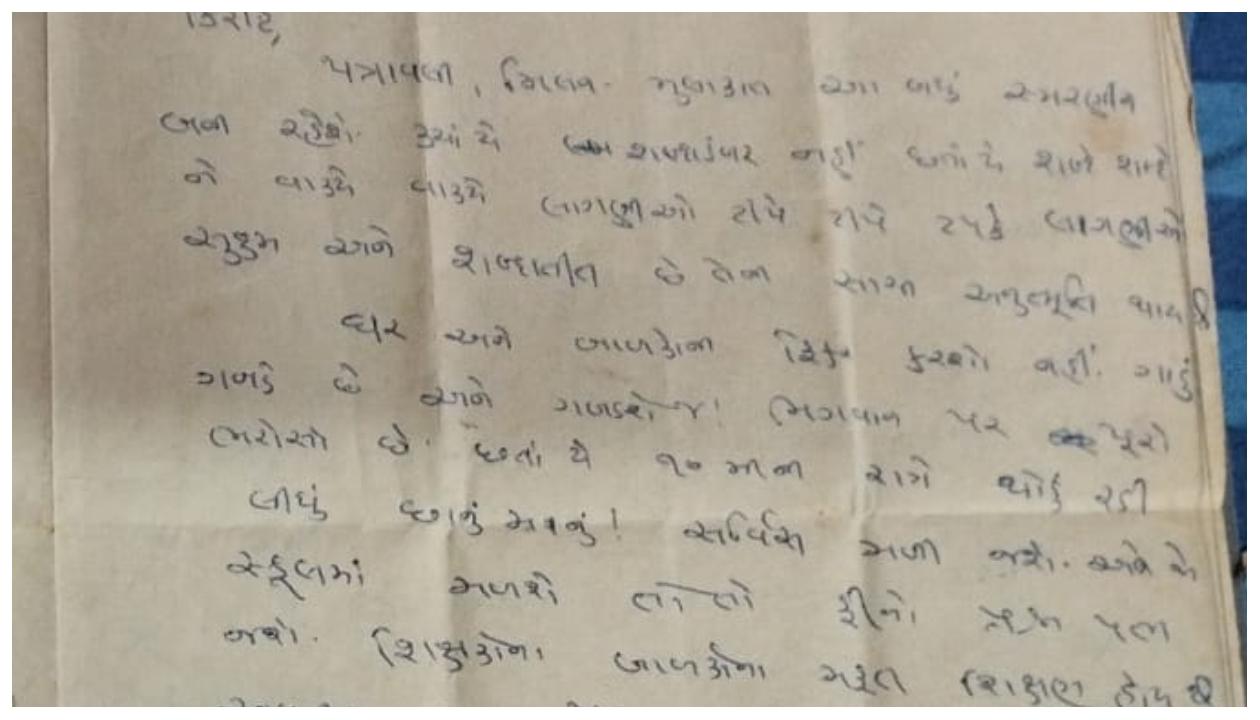 કિરીટ,
પત્રાવલી, મિલન- મુલાકાત આ બધું સ્મરણીય
બની રહેશે. ક્યાં યે શબ્દાડંબર નહીં છતાં યે શબ્દે શબ્દે
ને વાક્યે વાક્યે લાગણીઓ ટીપે ટીપે ટપકે લાગણીઓ
સુક્ષ્મ અને શબ્દાતીત છે તેની સાચી અનુભૂતિ થાય છે
ઘર અને બાળકોની ફિકર કરશો નહીં. ગાડું
ગબડે છે અને ગબડશે જ! ભગવાન પર પૂરો
ભરોસો છે. છતાં યે ૧૦ મીની રાત્રે થોડું રડી
લીધું છાનું મનનું! સર્વિસ મળી જશે. અને એ
સ્કૂલમાં મળશે તો તો ફીનો પ્રશ્ન પતી
જશે. શિક્ષકોના બાળકોના મફત શિક્ષણ હોય છે